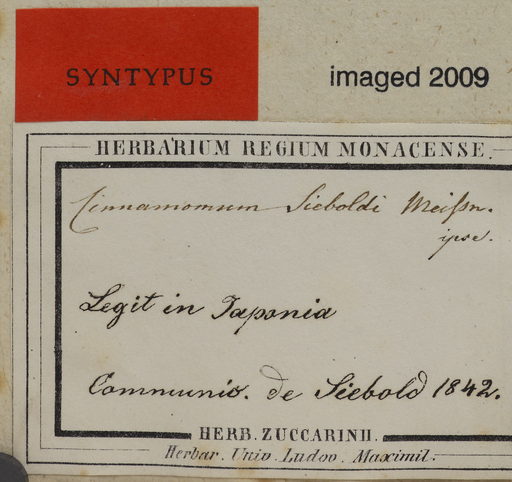 SYNTYPUS
imaged 2009
HERBARIUM REGIUM MONACENSE.
Cinnamomum Sieboldi Meißn.
ipse.
Legit in Japonia
Communic. de Siebold 1842.
HERB. ZUCCARINII.
Herbar. Univ. Ludov. Maximil.